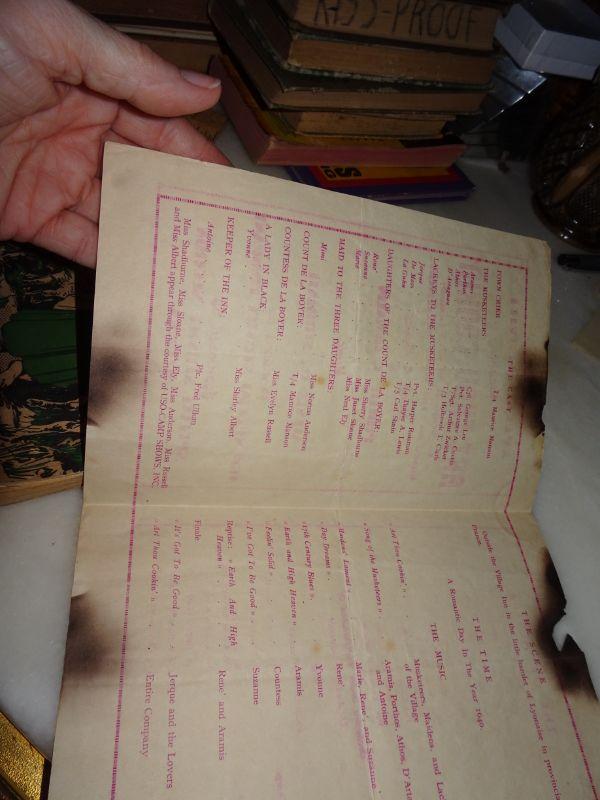 KISS-PROOF
THE CAST
TOWN CRIER T/4 Maurice Manson
THE MUSKETEERS
Aramis Cpl. George Leo
Porthos Pvt. Salvatore A. Costa
Athos T/Sgt. Arthur Zwicker
D'Artagnan T/3 Roderick T. Clark
LACKEYS TO THE MUSKETEERS:
Jerque Pvt. Harper Roisman
De Main T/4 Thayer A. Lewis
La Goha T/5 Carl Stein
DAUGHTERS OF THE COUNT DE LA BOYER
Rene' Miss Sherry Shadburne
Suzanne Miss Janet Sloane
Marie Miss Neal Ely
MAID TO THE THREE DAUGHTERS
Mimi Miss Norma Anderson
COUNT DE LA BOYER T/4 Maurice Manson
COUNTESS DE LA BOYER Miss Evelyn Russell
A LADY IN BLACK
Yvonne Miss Shirley Albert
KEEPER OF THE INN
Antoine Pfc. Fred Uliam
Miss Shadburne, Miss Sloane, Miss Ely, Miss Anderson, Miss Russell
and Miss Albert appear through the courtesy of USO-CAMP SHOWS, INC.
THE SCENE
Outside the Village Inn in the little hamlet of Lyonnaise in provincial
THE TIME
A Romantic Day In The Year 1640.
THE MUSIC
Musketeers, Maidens, and Lac
of the Village
« Art Thou Cookin' » Aramis, Porthos, Athos, D'Arta
and Antoine
« Song of the Musketeers »
Marie, Rene', and Suzanne
« Maidens' Lament » Rene'
« Day Dreams » Yvonne
« 17th Century Blues » Aramis
« Earth and High Heaven » Countess
« Feelin' Solid » Suzanne
« I've Got To Be Good »
Reprise: « Earth And High
Heaven » Rene' and Aramis
Finale
« It's Got To Be Good » Jerque and the Lovers
« Art Thou Cookin' » Entire Company